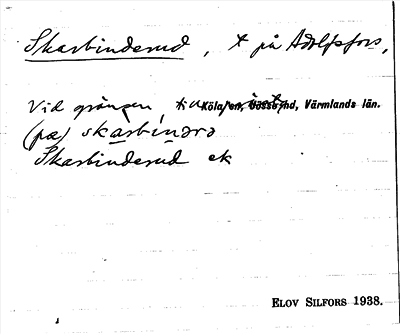 Skarbinderud, + på Adolfsfors,
Vid gränsen, Köla sn, hd, Värmlands län.
(pæ) skarbindrə
Skarbinderud ek
ELOV SILFORS 1938.